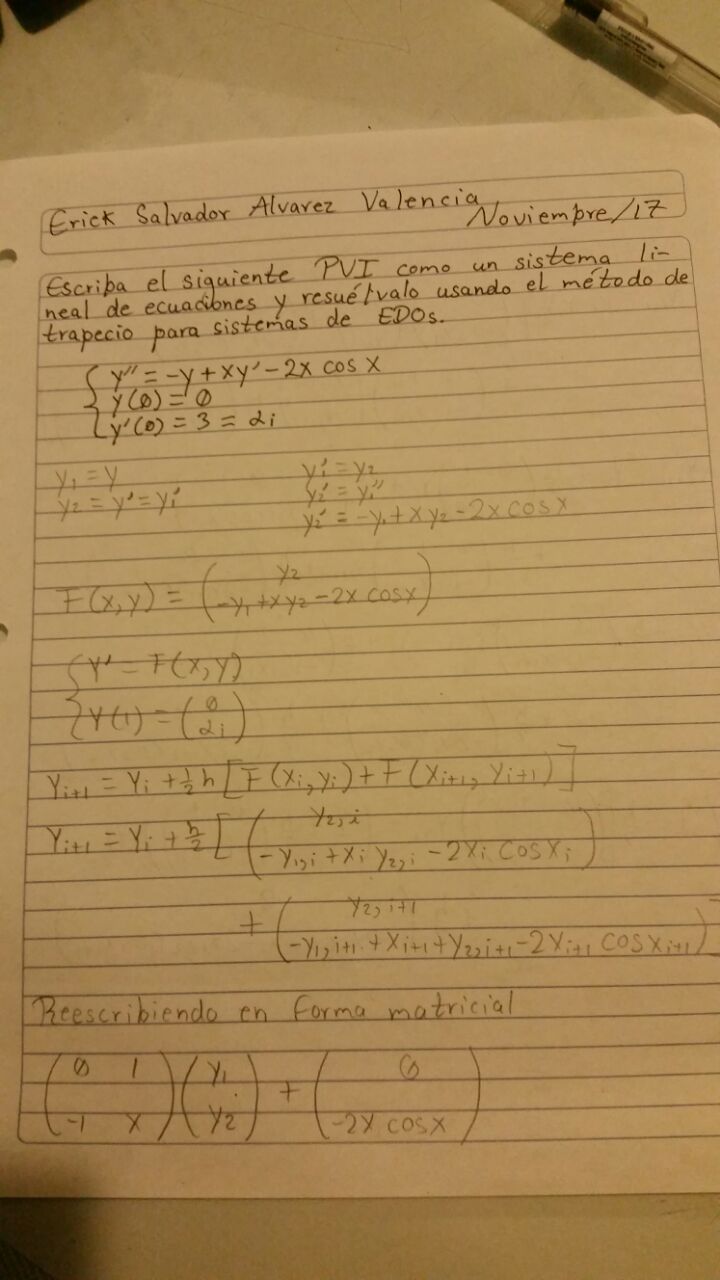 Erick Salvador Alvarez Valencia
Noviembre/17
Escriba el siguiente PVI como un sistema li-
neal de ecuaciones y resuélvalo usando el método de
trapecio para sistemas de EDOs.
{ y'' = -y + xy' - 2x cos x
y(0) = 0
y'(0) = 3 = αi
y₁ = y y₁' = y₂
y₂ = y' = y₁' y₂' = y₁''
y₂' = -y₁ + xy₂ - 2x cos x
F(x,y) = ( y₂
-y₁ + xy₂ - 2x cos x )
{ Y' = F(x,y)
Y(1) = ( 0
αi )
Yi+1 = Yi + ½ h [ F(xi, yi) + F(xi+1, Yi+1) ]
Yi+1 = Yi + h/2 [ ( y₂,i
-y₁,i + xi y₂,i - 2xi cos xi )
+ ( y₂,i+1
-y₁,i+1 + xi+1 + y₂,i+1 - 2xi+1 cos xi+1 )
Reescribiendo en forma matricial
( 0 1 ) ( y₁ ) + ( 0 )
( -1 x ) ( y₂ ) ( -2x cos x )